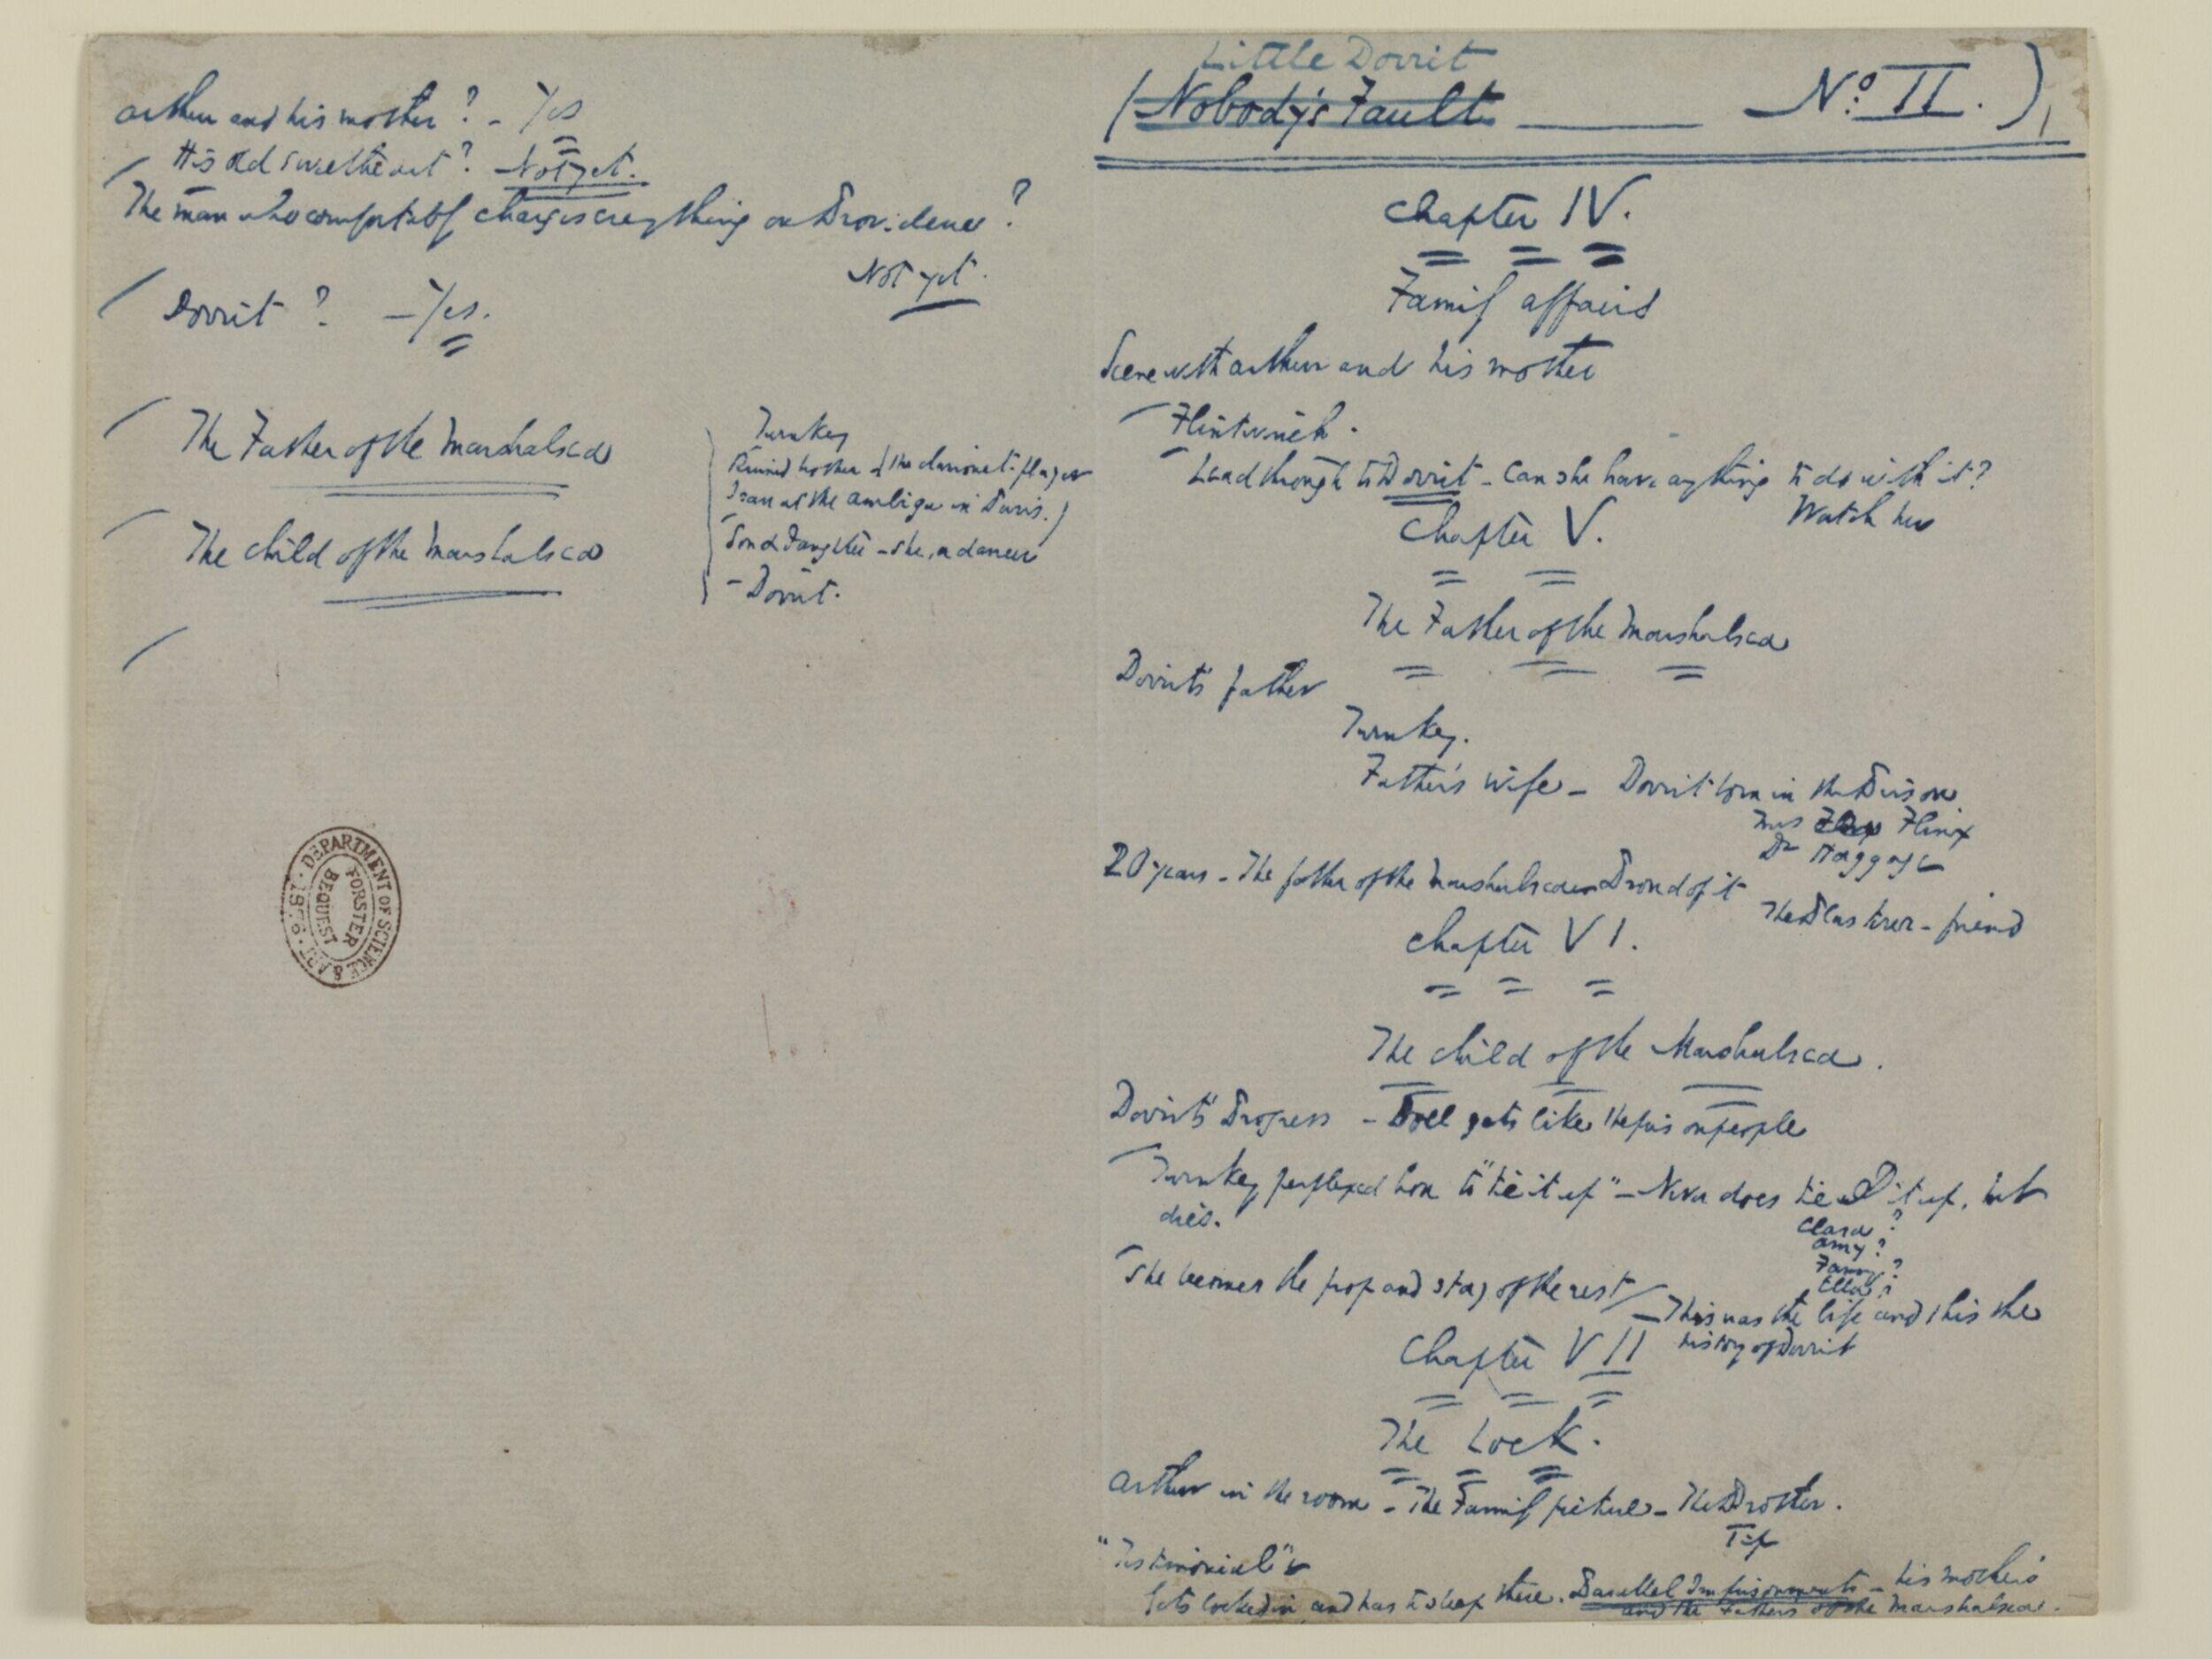 Arthur and his mother? - Yes
His old sweetheart? Not yet.
The man who comfortably charges everything on Providence?
Not yet.
Dorrit? - Yes.
The Father of the Marshalsea
The child of the Marshalsea
Turnkey
Ruined brother (the clarionet-player
I saw at the Ambigu in Paris.)
Son & Daughter - she, a dancer
- Dorrit.
DEPARTMENT OF SCIENCE & ART · 1876 ·
FORSTER
BEQUEST
Little Dorrit
(Nobody's Fault No. II.)
Chapter IV.
Family affairs
Scene with Arthur and his mother
Flintwinch.
Lead through to Dorrit - Can she have anything to do with it?
Watch her
Chapter V.
The Father of the Marshalsea
Dorrit's father
Turnkey.
Father's wife - Dorrit born in the Prison
Mrs Flinx
Dr Haggage
20 years - The father of the Marshalsea Proud of it
The Plasterer - friend
Chapter VI.
The child of the Marshalsea.
Dorrit's Progress - Doll gets like the prison people
Turnkey perplexed how to "tie it up" - Never does tie it up, but
dies.
Clara?
Amy?
Fanny?
Ella?
She becomes the prop and stay of the rest
- This was the life and this the
history of Dorrit
Chapter VII
The Lock.
Arthur in the room - The Family picture - The Brother.
Tip
"Testimonials"
Gets locked in and has to sleep there. Parallel Imprisonments - his mother's
and the Father's of the Marshalsea.